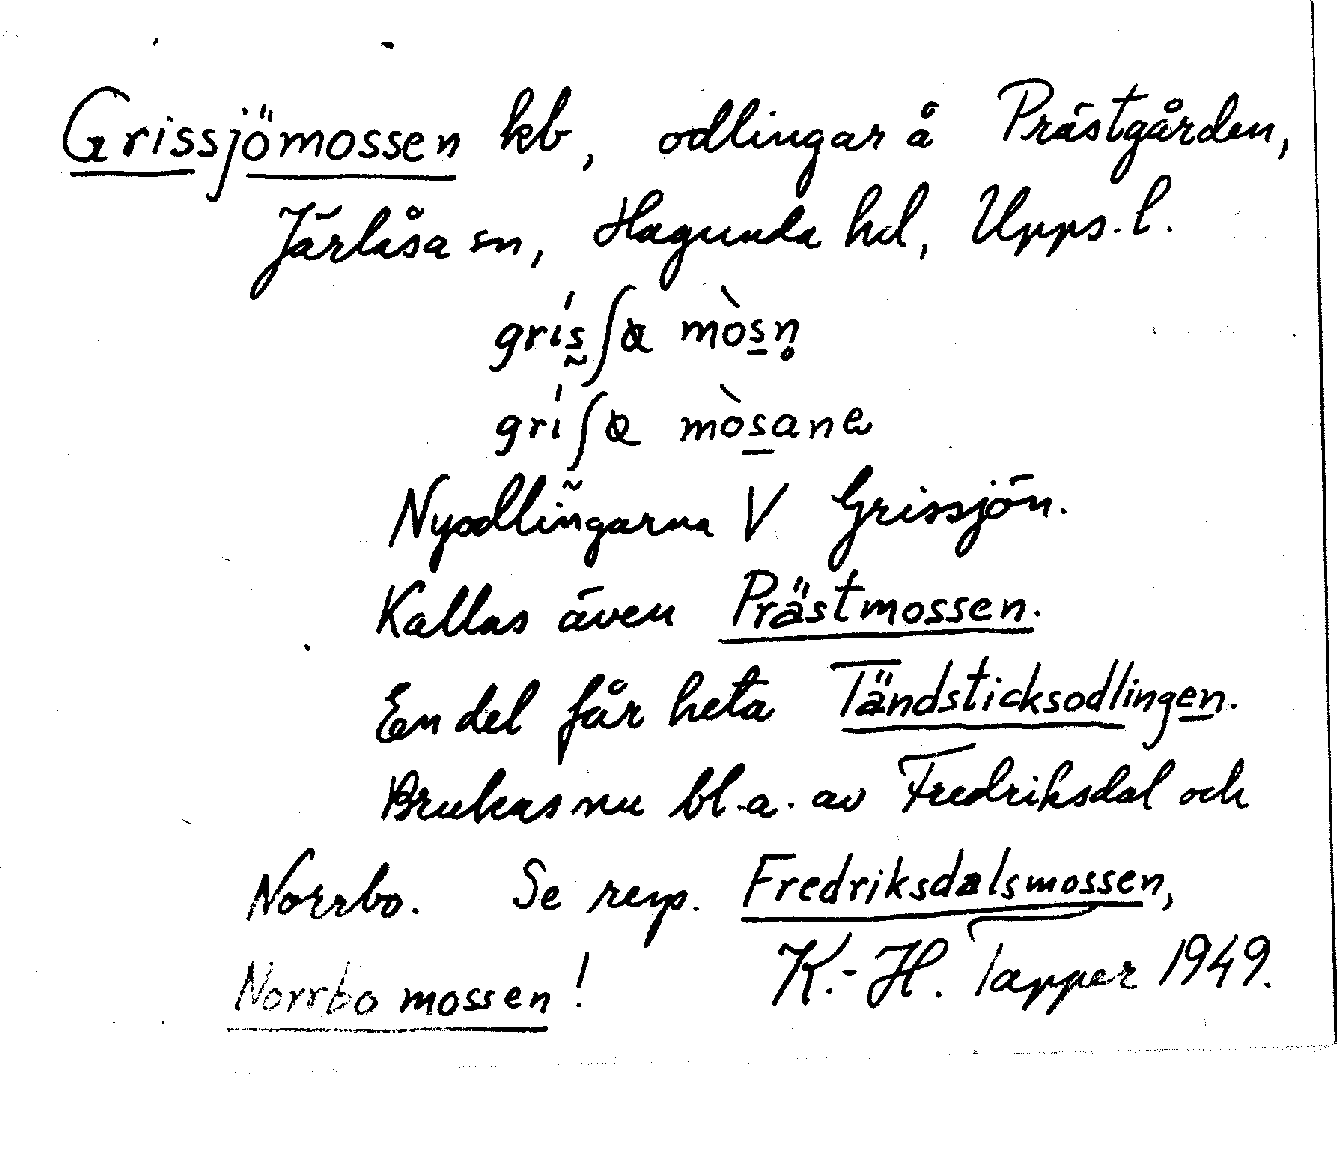 Grissjömossen kb, odlingar å Prästgården,
Järlåsa sn, Hagunda hd, Upps. l.
grís̰ʃꞷ mòs̲n̥
gríʃꞷ mòs̲ane
Nyodlingarna V Grissjön.
Kallas även Prästmossen.
En del får heta Tändsticksodlingen.
Brukas nu bl.a. av Fredriksdal och
Norrbo. Se resp. Fredriksdalsmossen,
Norrbomossen! K.-H. Tapper 1949.